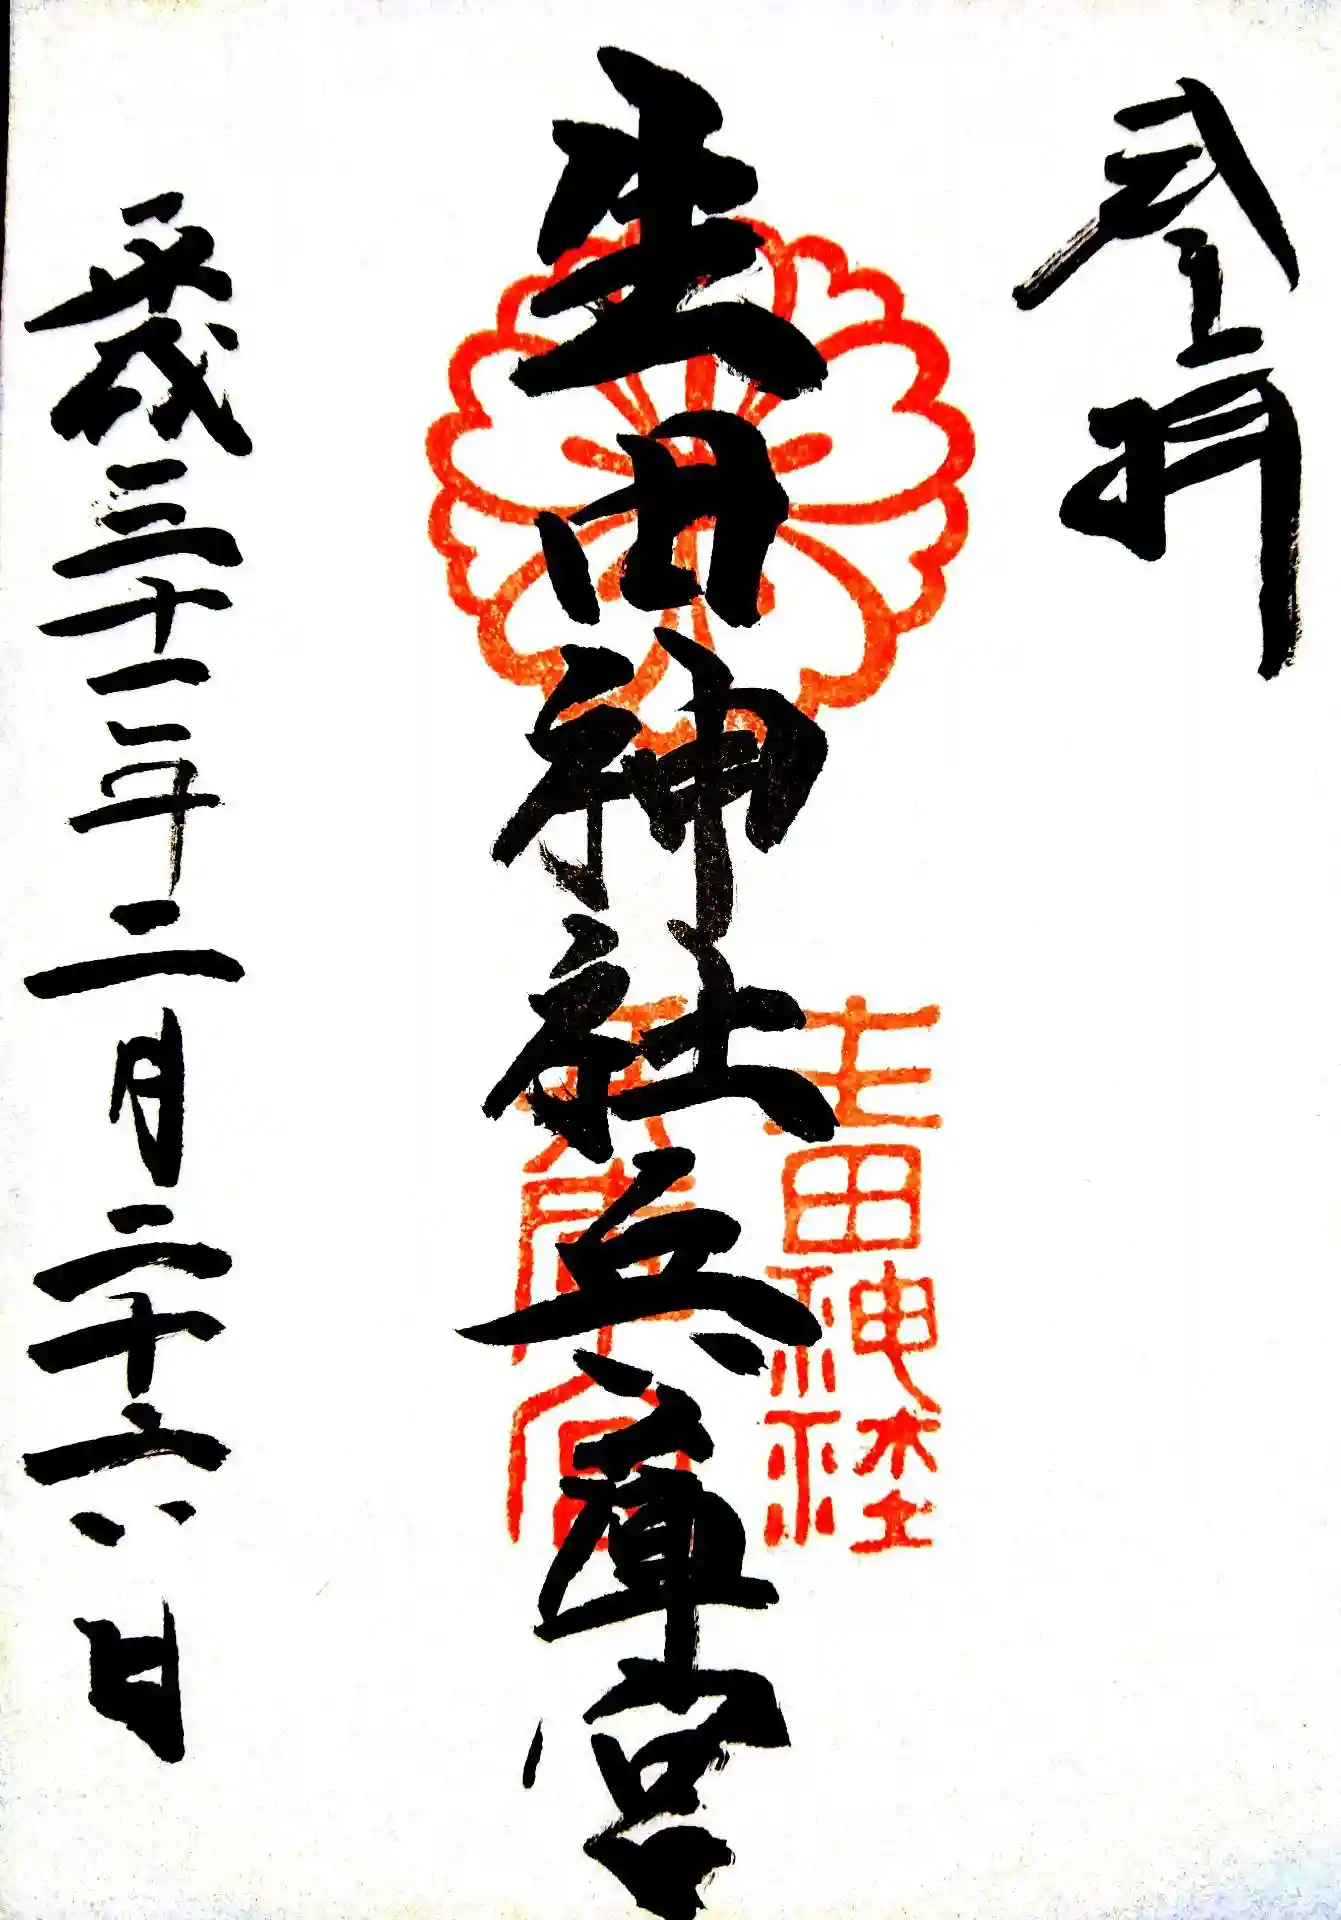 参拝
生田神社兵庫宮
生田神社
兵庫宮
平成三十一年二月二十六日